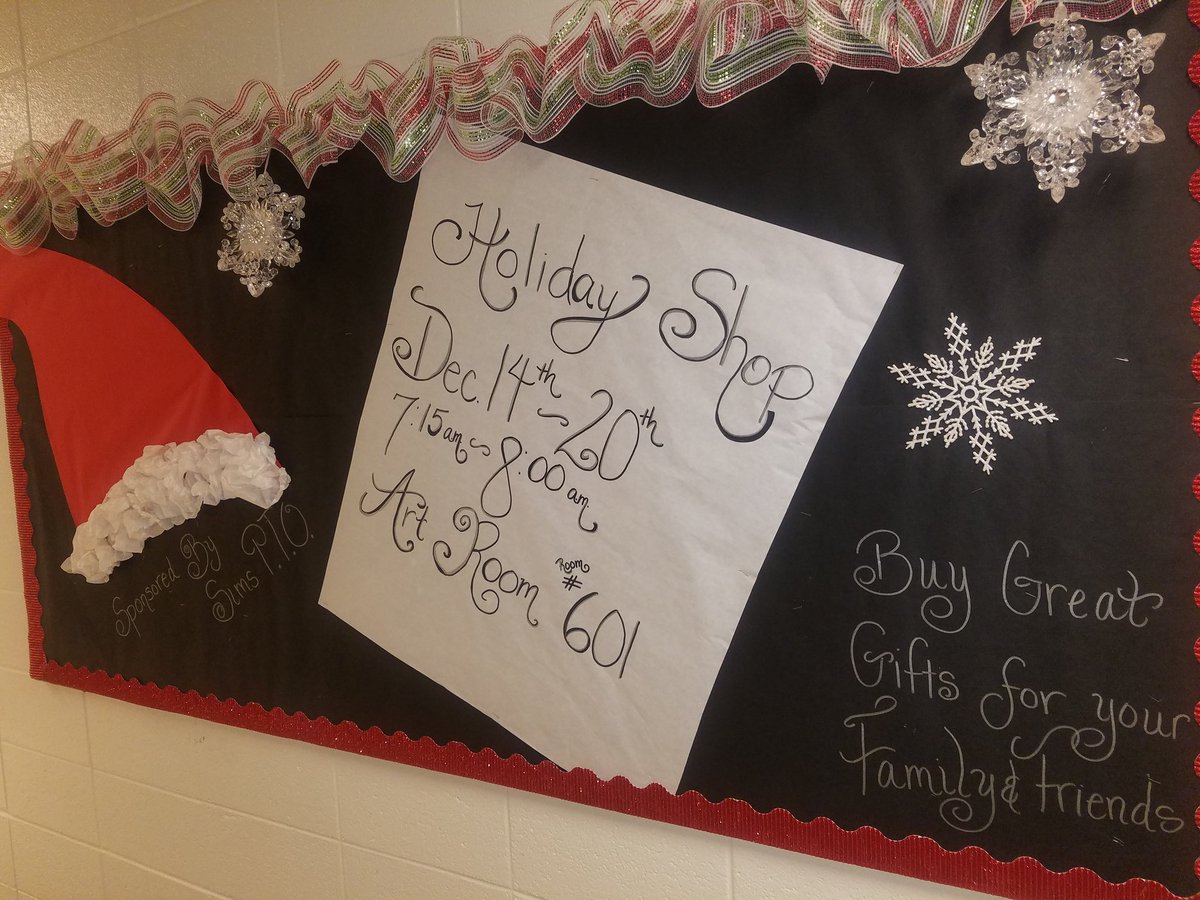 Holiday Shop
Dec. 14th ~ 20th
7:15 am ~ 8:00 am
Art Room Room # 601
Sponsored By
Sims P.T.O.
Buy Great
Gifts for your
Family & friends